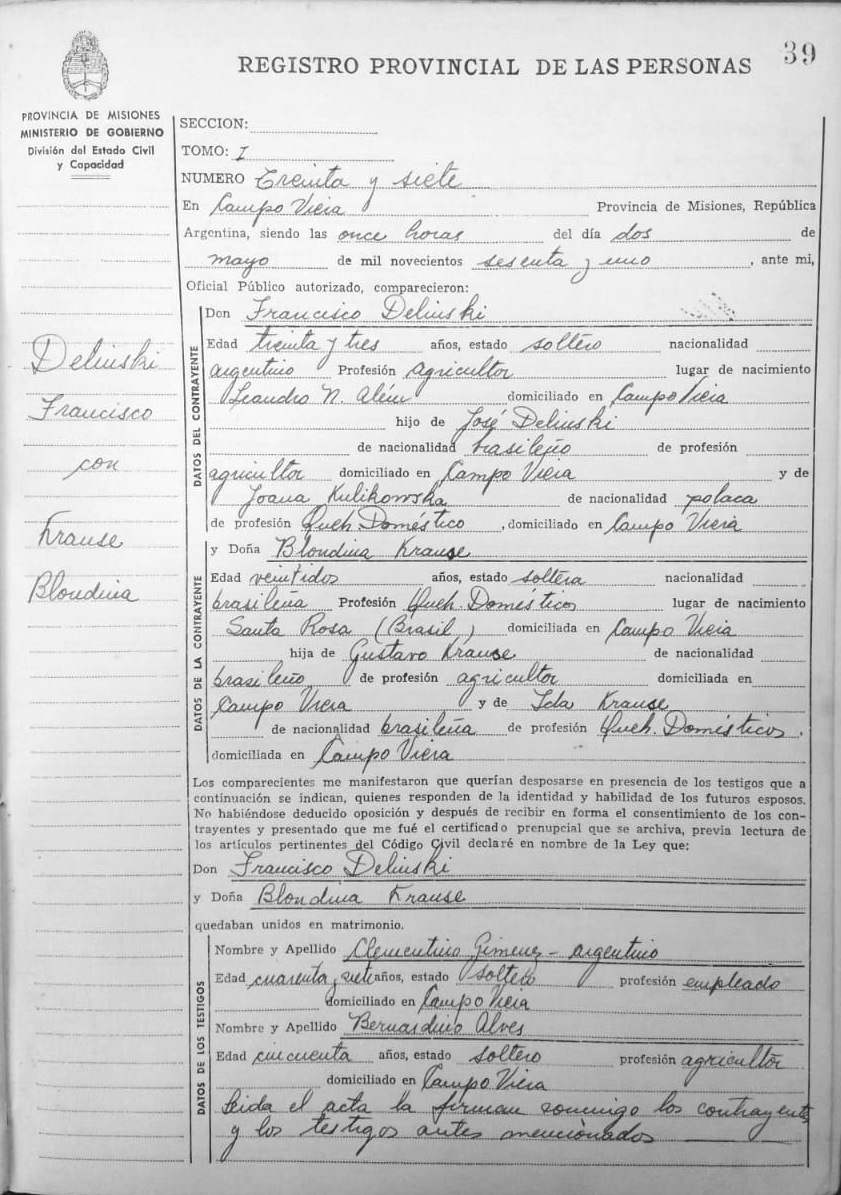 39
REGISTRO PROVINCIAL DE LAS PERSONAS
PROVINCIA DE MISIONES
MINISTERIO DE GOBIERNO
División del Estado Civil
y Capacidad
Delinski
Francisco
con
Krause
Blondina
SECCION:
TOMO: I
NUMERO Treinta y siete
En Campo Viera Provincia de Misiones, República
Argentina, siendo las once horas del día dos de
mayo de mil novecientos sesenta y uno, ante mi,
Oficial Público autorizado, comparecieron:
DATOS DEL CONTRAYENTE
Don Francisco Delinski
Edad treinta y tres años, estado soltero nacionalidad
argentino Profesión agricultor lugar de nacimiento
Leandro N. Além domiciliado en Campo Viera
hijo de José Delinski
de nacionalidad brasileño de profesión
agricultor domiciliado en Campo Viera y de
Joana Kulikowska de nacionalidad polaca
de profesión Queh. Doméstico, domiciliado en Campo Viera
DATOS DE LA CONTRAYENTE
y Doña Blondina Krause
Edad veintidos años, estado soltera nacionalidad
brasileña Profesión Queh. Domésticos lugar de nacimiento
Santa Rosa (Brasil) domiciliada en Campo Viera
hija de Gustavo Krause de nacionalidad
brasileño de profesión agricultor domiciliada en
Campo Viera y de Ida Krause
de nacionalidad brasileña de profesión Queh. Domésticos,
domiciliada en Campo Viera
Los comparecientes me manifestaron que querían desposarse en presencia de los testigos que a
continuación se indican, quienes responden de la identidad y habilidad de los futuros esposos.
No habiéndose deducido oposición y después de recibir en forma el consentimiento de los con-
trayentes y presentado que me fué el certificado prenupcial que se archiva, previa lectura de
los artículos pertinentes del Código Civil declaré en nombre de la Ley que:
Don Francisco Delinski
y Doña Blondina Krause
quedaban unidos en matrimonio.
DATOS DE LOS TESTIGOS
Nombre y Apellido Clementino Gimenez - argentino
Edad cuarenta y siete años, estado soltero profesión empleado
domiciliado en Campo Viera
Nombre y Apellido Bernardino Alves
Edad cincuenta años, estado soltero profesión agricultor
domiciliado en Campo Viera
Leida el acta la firman conmigo los contrayentes
y los testigos antes mencionados